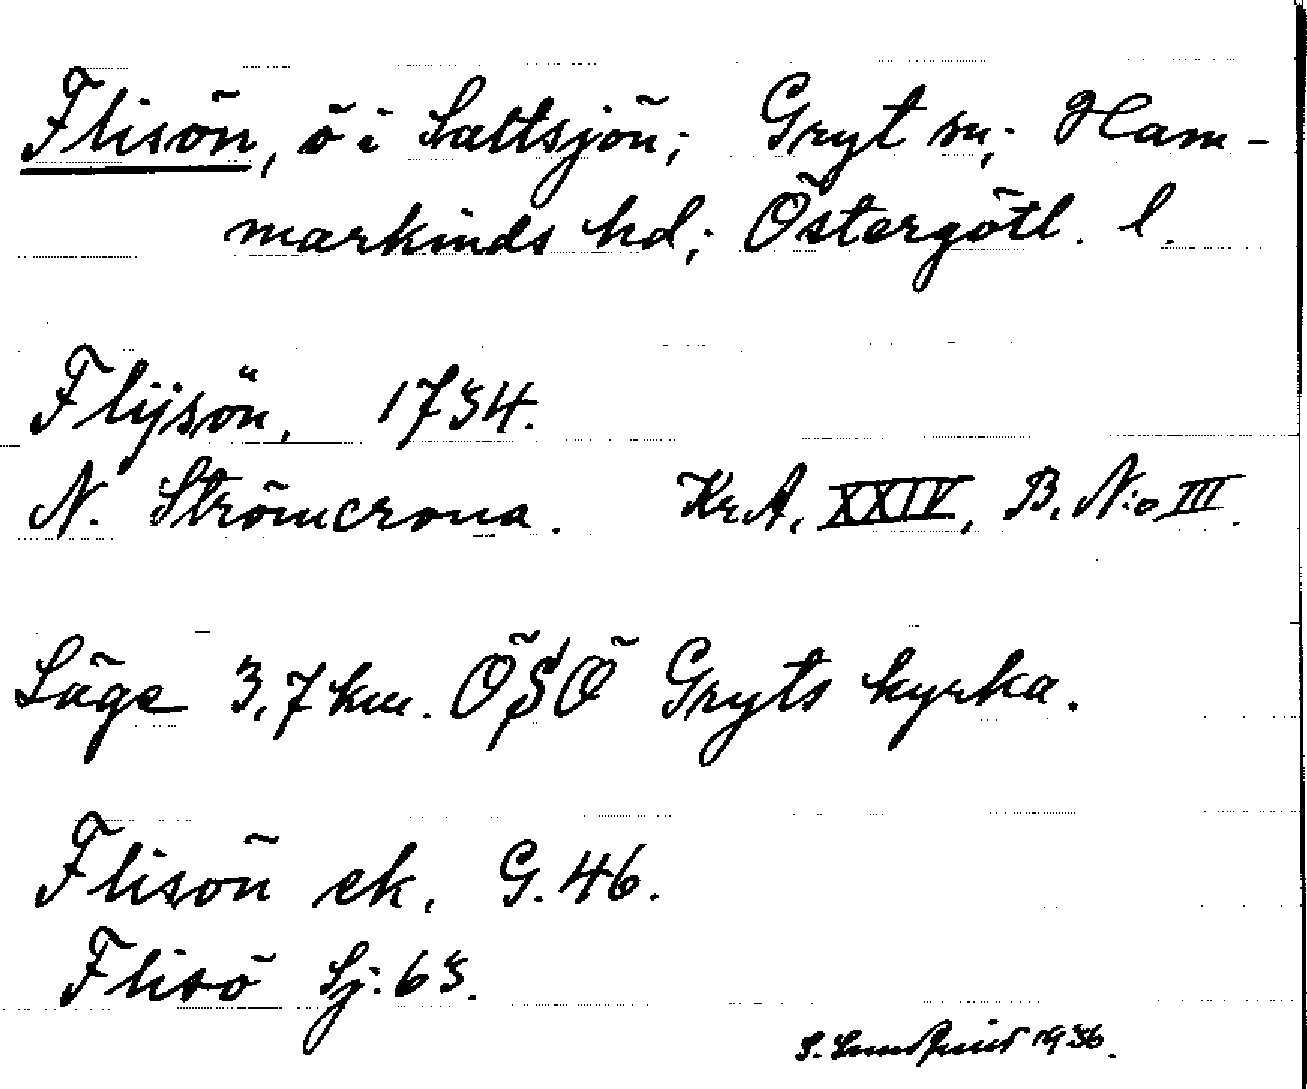 Flisön, ö i Saltsjön; Gryt sn; Ham-
markinds hd; Östergötl. l.
Flijsön, 1734.
N. Strömcrona. Kr.A. XXIV, B. N:o III.
Läge 3,7 km. ÖSÖ Gryts kyrka.
Flisön ek. G. 46.
Flisö Sj. 63.
S. Lundquist 1936.